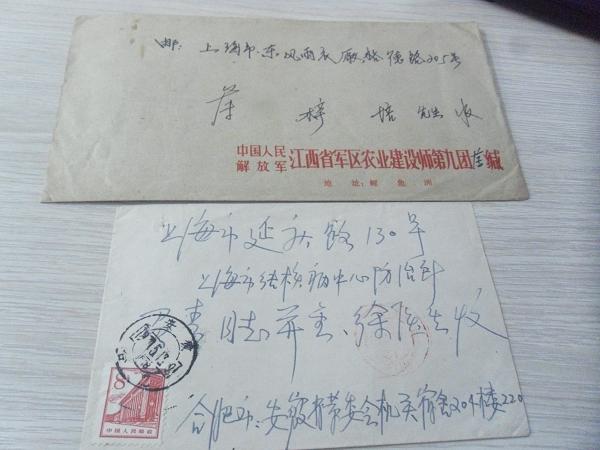 邮: 上海市东风雨衣厂 路305号
培 先生 收
中国人民
解放军 江西省军区农业建设师第九团 缄
地址: 鲤鱼洲
上海市延庆路130号
上海市结核病中心防治所
同志 并 徐医生 收
合肥市:安徽省革委会机关宿舍204楼220
8
中国人民邮政